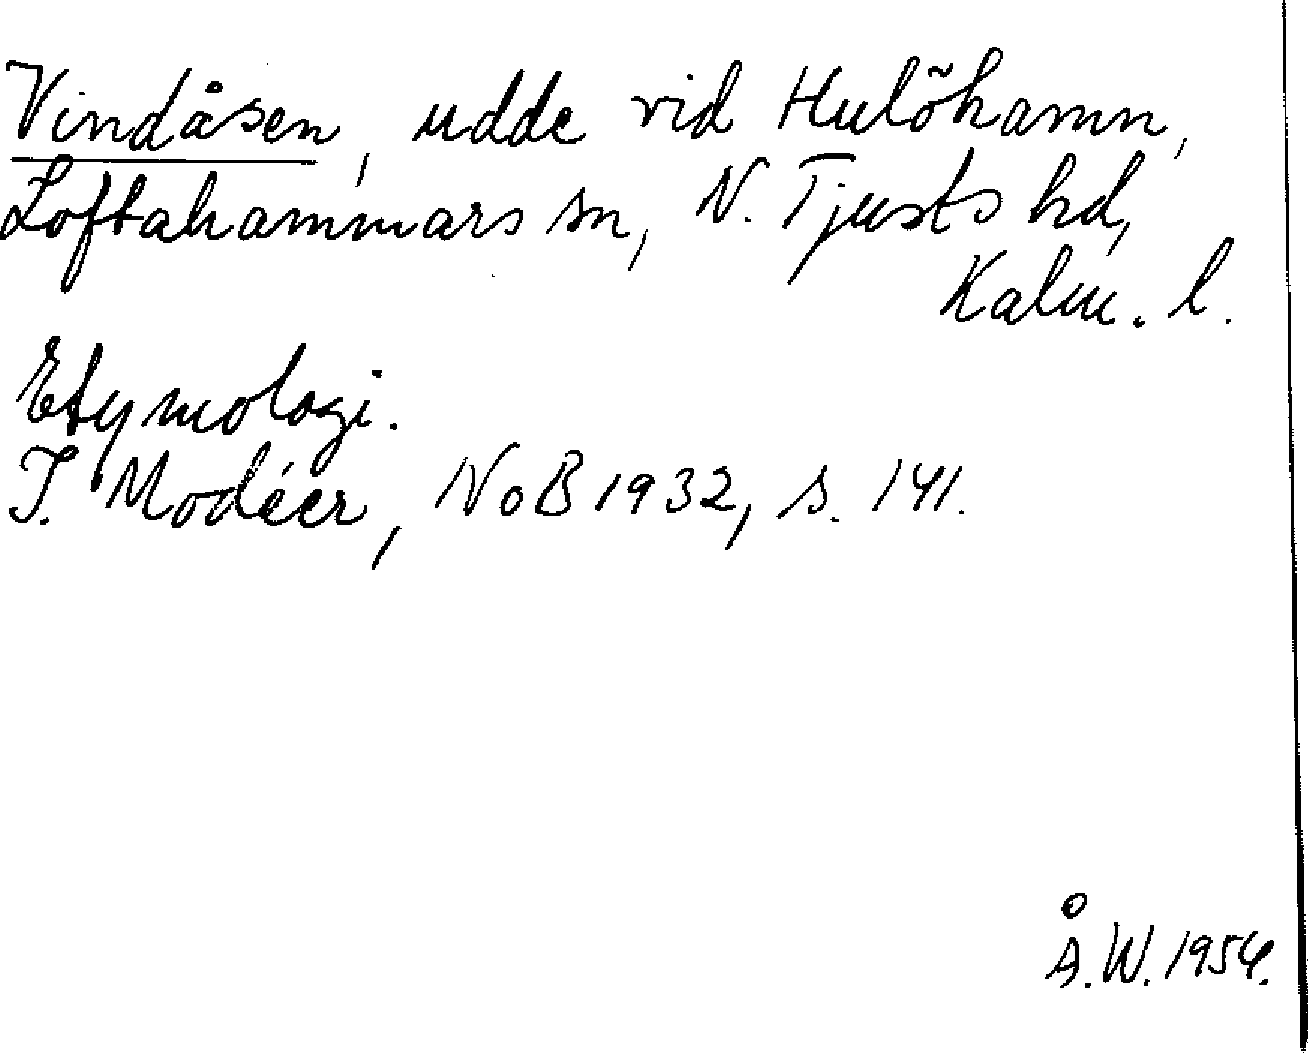 Vindåsen, udde vid Hulöhamn,
Loftahammars sn, N. Tjusts hd,
Kalm. l.
Etymologi.
I. Modéer, NoB 1932, s. 141.
Å.W. 1954.